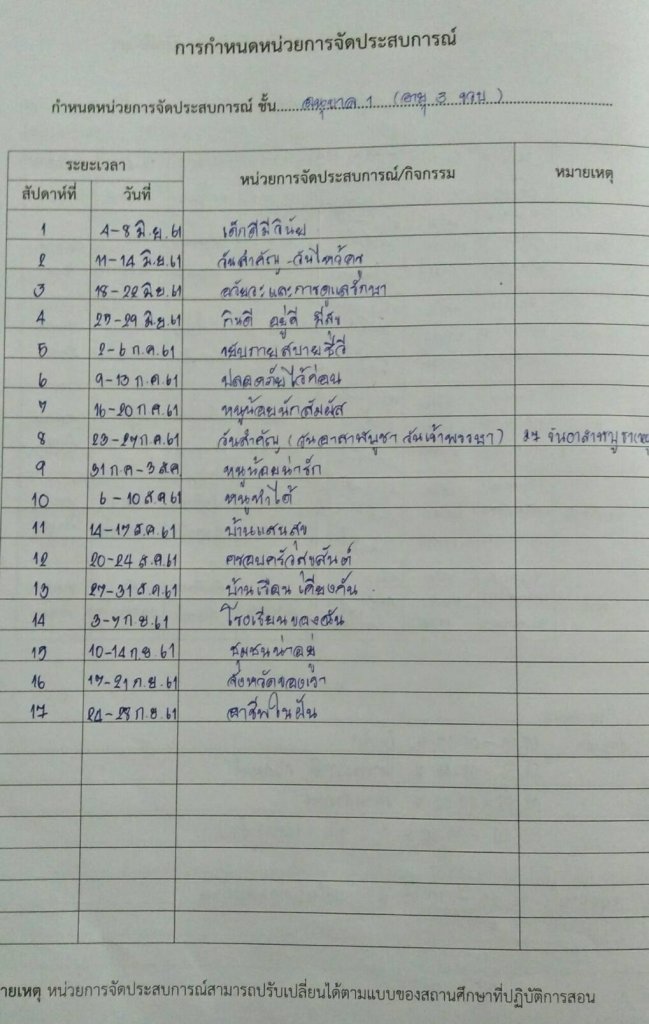 การกำหนดหน่วยการจัดประสบการณ์
กำหนดหน่วยการจัดประสบการณ์ ชั้น....อนุบาล 1 (อายุ 3 ขวบ)....
ระยะเวลา หน่วยการจัดประสบการณ์/กิจกรรม หมายเหตุ
สัปดาห์ที่ วันที่
1 4-8 มิ.ย. 61 เด็กดีมีวินัย
2 11-14 มิ.ย. 61 วันสำคัญ - วันไหว้ครู
3 18-22 มิ.ย. 61 อวัยวะและการดูแลรักษา
4 25-29 มิ.ย. 61 กินดี อยู่ดี มีสุข
5 2-6 ก.ค. 61 ขยับกายสบายชีวี
6 9-13 ก.ค. 61 ปลอดภัยไว้ก่อน
7 16-20 ก.ค. 61 หนูน้อยนักสัมผัส
8 23-27 ก.ค. 61 วันสำคัญ (วันอาสาฬหบูชา วันเข้าพรรษา) 27 วันอาสาฬหบูชา
9 31 ก.ค - 3 ส.ค หนูน้อยน่ารัก
10 6 - 10 ส.ค 61 หนูทำได้
11 14-17 ส.ค. 61 บ้านแสนสุข
12 20-24 ส.ค. 61 ครอบครัวสุขสันต์
13 27-31 ส.ค. 61 บ้านเรือนเคียงกัน
14 3-7 ก.ย. 61 โรงเรียนของฉัน
15 10-14 ก.ย. 61 ชุมชนน่าอยู่
16 17-21 ก.ย. 61 จังหวัดของเรา
17 24-28 ก.ย 61 อาชีพในฝัน
ายเหตุ หน่วยการจัดประสบการณ์สามารถปรับเปลี่ยนได้ตามแบบของสถานศึกษาที่ปฏิบัติการสอน